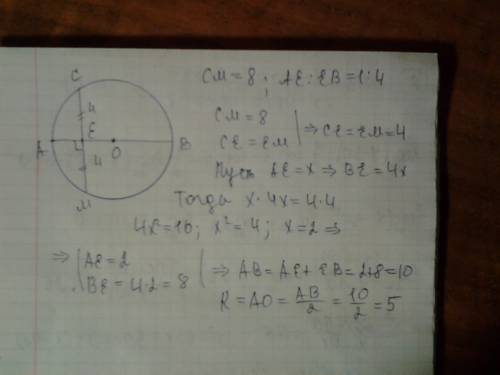 CM = 8 ; AE : EB = 1:4
C
4
E
A
O
B
4
M
CM = 8
CE = EM
⇒ CE = EM = 4
Пусть AE = x ⇒ BE = 4x
Тогда x · 4x = 4 · 4
4x² = 16; x² = 4; x = 2 ⇒
⇒ AE = 2
BE = 4·2 = 8
⇒ AB = AE + EB = 2+8=10
R = AO = AB/2 = 10/2 = 5